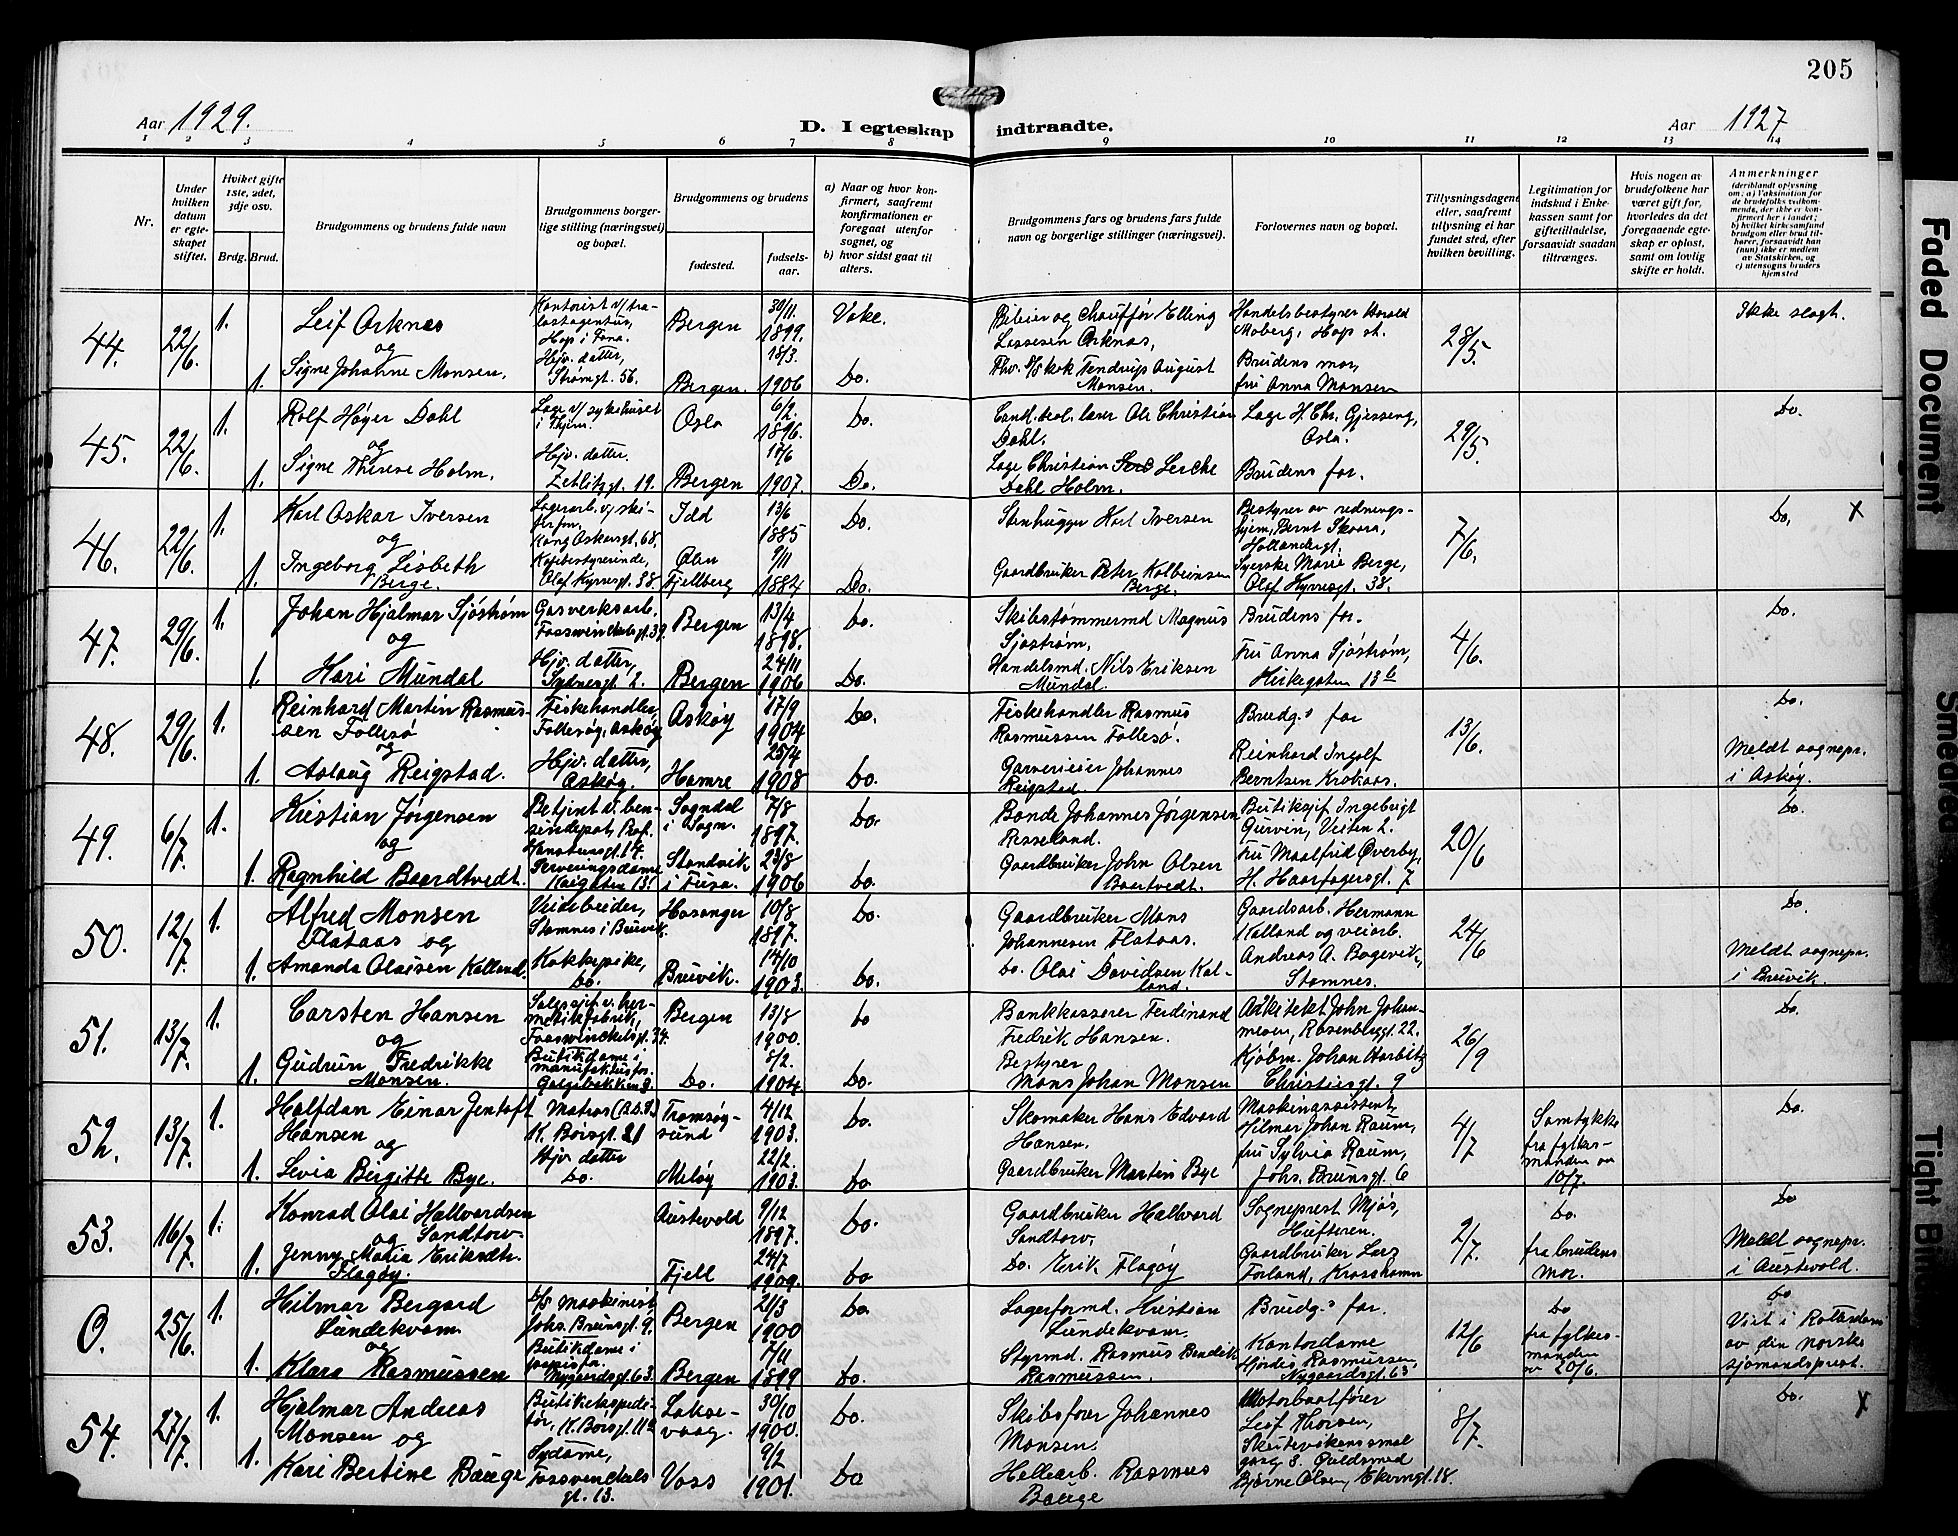 205
Aar 1929.
D. I egteskap indtraadte.
Aar 1927
1 2 3 4 5 6 7 8 9 10 11 12 13 14
Nr.
Under hvilken datum er egteskapet stiftet.
Hvilket gifte 1ste, 2det, 3dje osv.
Brdg. Brud.
Brudgommens og brudens fulde navn
Brudgommens borgerlige stilling (næringsvei) og bopæl.
Brudgommens og brudens
fødested.
fødselsaar.
a) Naar og hvor konfirmert, saafremt konfirmationen er foregaat utenfor sognet, og
b) hvor sidst gaat til alters.
Brudgommens fars og brudens fars fulde navn og borgerlige stillinger (næringsvei).
Forlovernes navn og bopæl.
Tillysningsdagene eller, saafremt tillysning ei har fundet sted, efter hvilken bevilling.
Legitimation for indskud i Enkekassen samt for giftetilladelse, forsaavidt saadan tiltrænges.
Hvis nogen av brudefolkene har været gift før, hvorledes da det foregaaende egteskap er opløst, samt om lovlig skifte er holdt.
Anmerkninger
44. 22/6 1. Leif Arknes
og
1. Signe Johanne Monsen.
Hop i Fana.
Hjv. datter,
Strømgt. 56.
Bergen 30/11 1899. Vake.
Bergen. 18/3 1906 Do.
Bileier og Chauffør Elling
Lassesen Arknes,
August Monsen.
Handelsbestyrer Harald
Moberg, Hop st.
Brudens mor,
fru Anna Monsen
28/5.
Ikke slegt.
45. 22/6. 1. Rolf Høyer Dahl
og
1. Signe Therese Holm.
Læge v/ sykehuset
Hjv. datter.
Zetlitzgt. 19.
Oslo 6/2 1896. Do.
Bergen 17/6 1907. Do.
Cand. teol. lærer Ole Christian
Dahl.
Læge Christian Lerche
Dahl Holm.
Læge H. Chr. Gjessing,
Oslo.
Brudens far.
29/5.
Do.
46. 22/6. 1. Karl Oskar Iversen
og
1. Ingeborg Lisbeth
Berge.
Kong Oskarsgt. 68.
Kafébestyrerinde,
Olaf Kyrresgt. 38.
Idd 13/6 1885 Do.
Ølen
Fjellberg 9/11 1884 Do.
Stenhugger Karl Iversen
Gaardbruker Peter Kolbeinsen
Berge.
Bestyrer av rednings-
hjem, Bernt Skaara,
Hollendergt.
Syerske Marie Berge,
Olaf Kyrresgt. 38.
7/6.
Do. x
47. 29/6. 1. Johan Hjalmar Sjöström
og
1. Kari Mundal
Gasverksarb.
Fosswinckelsgt. 39.
Hjv. datter,
Sydnesgt. 2.
Bergen 13/4 1898. Do.
Bergen 24/11 1906 Do.
Skibstømmermd Magnus
Sjøstrøm,
Handelsmd. Nils Eriksen
Mundal.
Brudens far.
Fru Anna Sjöström,
Kirkegaten 13 b
4/6.
Do.
48. 29/6. 1. Reinhard Martin Rasmus-
sen Follesø
og
1. Aslaug Reigstad.
Fiskehandler,
Follesøg, Askøy
Hjv. datter,
Askøy.
Askøy 17/9 1904 Do.
Hamre 25/4 1908 Do.
Fiskehandler Rasmus
Rasmussen Follesø.
Garverieier Johannes
Reigstad.
Brudg.s far
Reinhard Ingolf
Berntsen Krokaas.
13/6.
Do.
Meldt sognepr.
i Askøy.
49. 6/7. 1. Kristian Jørgensen
og
1. Ragnhild Baardtvedt.
Betjent v. ben-
sindepot, Prof.
Hansteensgt. 14.
Serveringsdame
Kaigaten 13.
Sogndal
i Sogn. 7/8 1897. Do.
Strandvik
i Fusa. 23/8 1906 Do.
Bonde Johannes Jørgensen
Hesseland.
Gaardbruker John Olsen
Baartvedt.
Butiksjef Ingebrigt
Gurvin, Veiten 2.
Fru Maalfrid Øverby,
H. Haarfagersgt. 7
20/6
Do.
50. 12/7 1. Alfred Monsen
Flataas og
1. Amanda Olaisen Kalland.
Veiarbeider,
Stamnes i Bruvik.
Kokkepike,
Do.
Hosanger 10/8 1897. Do.
Bruvik. 14/10 1903. Do.
Gaardbruker Mons
Johannesen Flataas.
Do. Olai Davidsen Kal-
land.
Gaardsarb. Hermann
Kalland og veiarb.
Andreas A. Bogevik,
Stamnes.
24/6
Do.
Meldt sognepr.
i Bruvik.
51. 13/7. 1. Carsten Hansen
og
1. Gudrun Fredrikke
Monsen.
Salgssjef v. her-
metikfabrik,
Fosswinckelsgt. 34.
Butikdame i
manufakturfor.
Galgebakken 3.
Bergen 13/8 1900. Do
Do. 8/2. 1904 Do.
Bankkasserer Ferdinand
Fredrik Hansen.
Bestyrer
Mons Johan Monsen
Arkitekt John Johan-
nesen, Rosenberggt. 22.
Kjøbm. Johan Harbitz
Christiesgt. 9
26/9
Do.
52. 13/7. 1. Halfdan Einar Jentoft
Hansen
og
1. Levia Birgitte Bye.
Matros (B.D.S.)
K. Borsgt. 21
Hjv. datter
Do.
Tromsøy-
sund 4/12 1903. Do.
Meløy 22/2. 1903. Do
Skomaker Hans Edvard
Hansen.
Gaardbruker Martin Bye
Maskinassistent,
Hilmar Johan Raum,
fru Sylvia Raum,
Johs. Brunsgt. 6
4/7
Samtykke
fra fylkes-
manden av
10/7.
Do.
53. 16/7. 1. Konrad Olai Hallvardsen
og Sandtorv.
1. Jenny Maria Eriksdtr.
Flagøy.
Austevold 9/12 1897. Do.
Fjell 24/7 1909. Do
Gaardbruker Hallvard
Sandtorv.
Do. Erik Flagøy
Sogneprest Mjøs,
Hufteren.
Gaardbruker Lars
Forland, Krosshamn
2/7.
Do.
fra brudens
mor.
Do
Meldt sognepr.
i Austevold.
0. 25/6. 1. Hilmar Bergard
Lundekvam
og
1. Klara Rasmussen
D/S maskinist
Johs. Brunsgt. 9.
Butikdame i
papirfor.
Nygaardsgt. 63.
Bergen 21/3 1900 Do.
Bergen 7/11 1899 Do.
Lagerformd. Kristian
Lundekvam.
Styrmd. Rasmus Bendik
Rasmussen.
Brudg.s far.
Kontordame
Hjørdis Rasmussen,
Nygaardsgt. 63
12/6
Do
fra fylkes-
manden
av 20/6.
Do
Viet i Rotterdam
av den norske
sjømandsprest.
54. 27/7. 1. Hjalmar Andreas
Monsen og
1. Kari Bertine Bauge
Butikekspedi-
tør, K. Borsgt. 11a
Sydame,
Fossvinckels
gt. 13.
Lakse-
vaag. 30/10 1900. Do.
Voss 9/2 1901. Do
Skibsfører Johannes
Monsen.
Hellearb. Rasmus
Bauge
Motorbaatfører
Leif Thorsen,
Skutevikens smal
gang 8. Guldsmed
Bjarne Olsen, Ekrengt. 18.
8/7.
Do. x
Faded Document
Smeared
Tight Bin